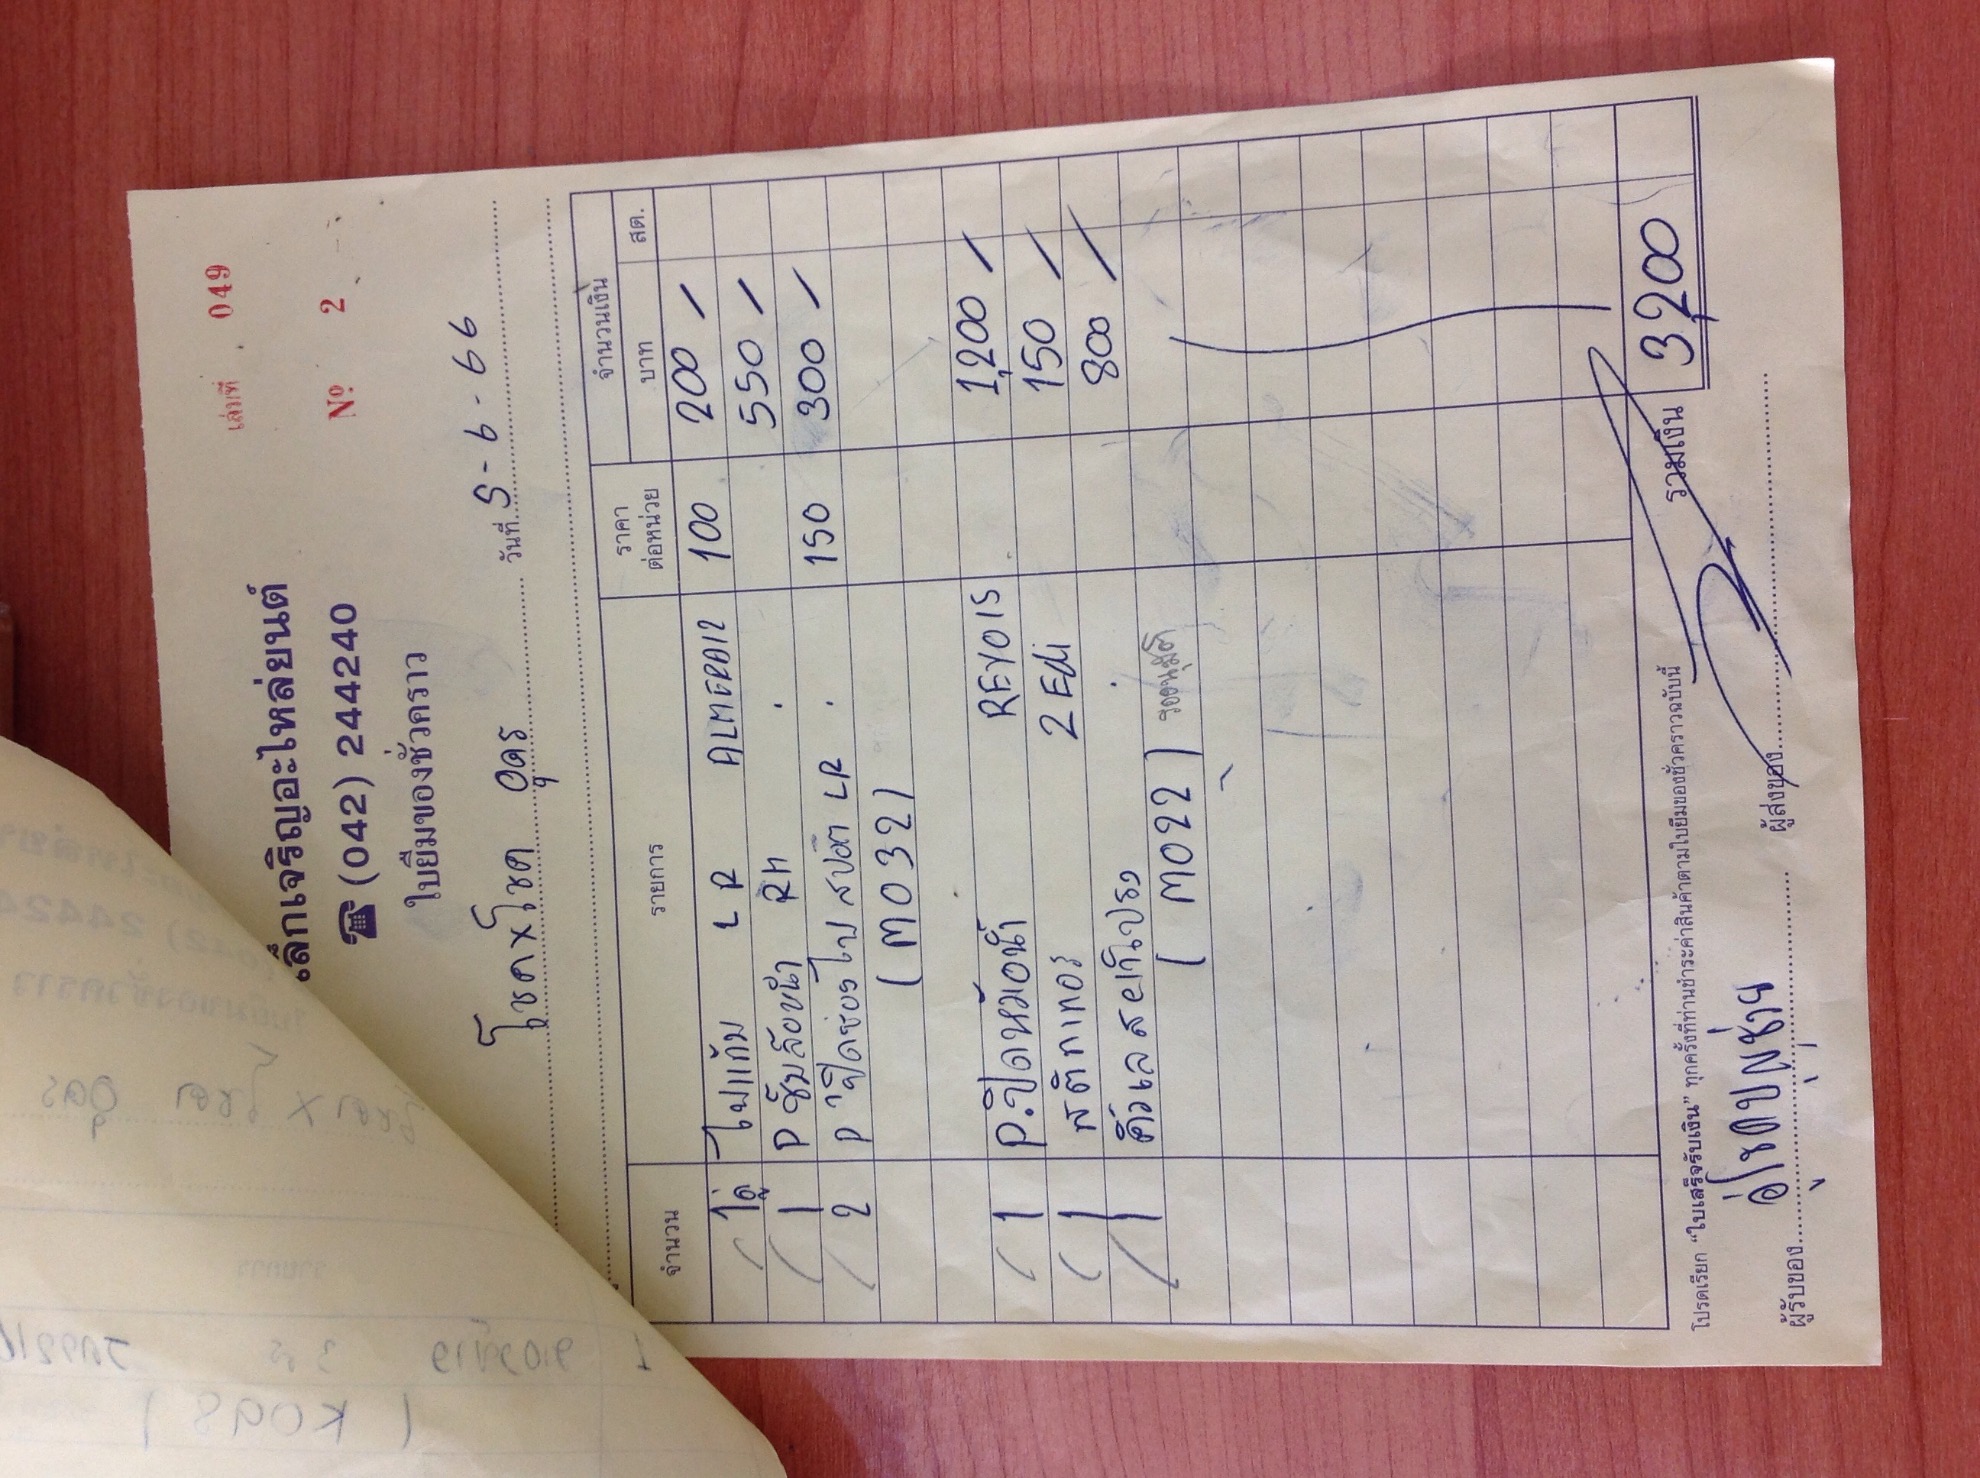 เล่มที่ 049
เล็กเจริญอะไหล่ยนต์
☎ (042) 244240
Nº 2
ใบยืมของชั่วคราว
โชค x โชค อุดร วันที่ 5-6-66
จำนวน รายการ ราคาต่อหน่วย จำนวนเงิน
บาท สต.
1คู่ ไฟแก้ม LR ALMERA12 100 200
1 P ซุ้มล้อหน้า RH 550
2 P ปิดช่องไฟ สปอต LR 150 300
(M032)
1 P.ปิดหม้อน้ำ REVO15 1,200
1 สติกเกอร์ 2 Edi 150
1 คิ้วเลสแก้มปรง 800
(M022) รออนุมัติ
รวมเงิน 3,200
โปรดเรียก “ใบเสร็จรับเงิน” ทุกครั้งที่ท่านชำระค่าสินค้าตามใบยืมของชั่วคราวฉบับนี้
ผู้รับของ ผู้ส่งของ
(K098)